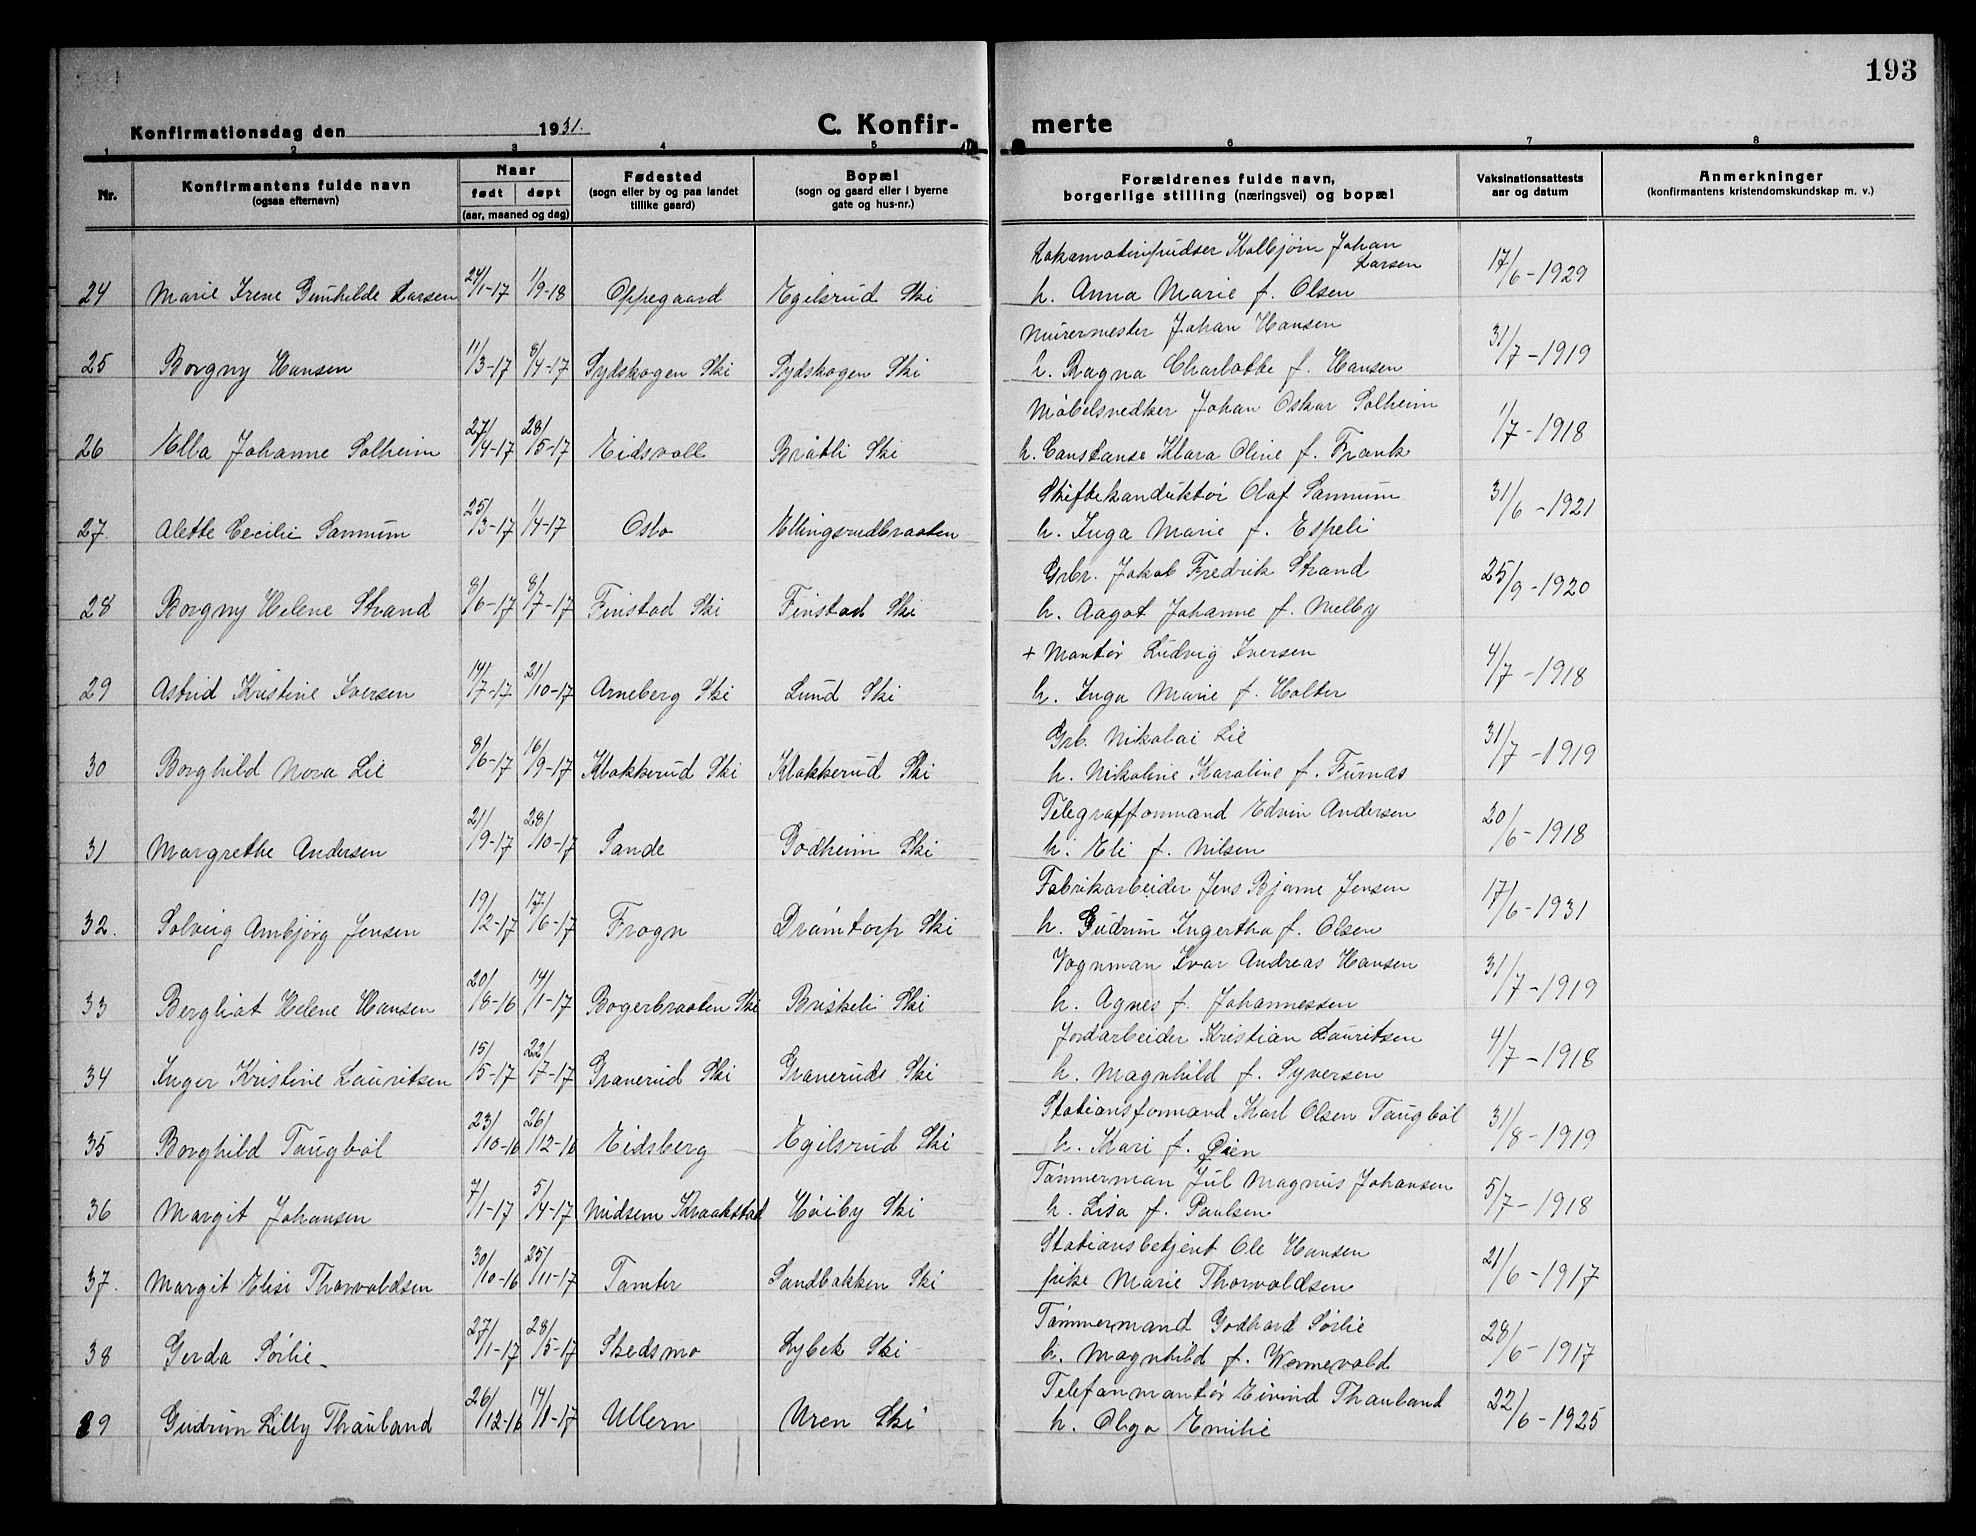 193
Konfirmationsdag den 1931.
C. Konfir-
merte
1 2 3 4 5 6 7 8
Nr.
Konfirmantens fulde navn
(ogsaa efternavn)
Naar
født døpt
(aar, maaned og dag)
Fødested
(sogn eller by og paa landet
tillike gaard)
Bopæl
(sogn og gaard eller i byerne
gate og hus-nr.)
Forældrenes fulde navn,
borgerlige stilling (næringsvei) og bopæl
Vaksinationsattests
aar og datum
Anmerkninger
(konfirmantens kristendomskundskap m. v.)
Lokomotivpudser Kolbjørn Johan
Larsen
24 Marie Irene Gunhilde Larsen 24/1-17 1/9-18 Oppegaard Egilsrud Ski h. Anna Marie f. Olsen 17/6-1929
Murermester Johan Hansen
25 Borgny Hansen 11/3-17 8/4-17 Sydskogen Ski Sydskogen Ski h. Ragna Charlotte f. Hansen 31/7-1919
Møbelsnedker Johan Oskar Solheim
26 Ella Johanne Solheim 27/4-17 28/5-17 Eidsvoll Bråtli Ski h. Constanse Klara Oline f. Frank 1/7-1918
Skiftekonduktør Olaf Sannum
27. Alette Cecilie Sannum 25/3-17 1/4-17 Oslo Ellingsrudbraaten h. Inga Marie f. Espeli 31/6-1921
Grbr. Jakob Fredrik Strand
28 Borgny Helene Strand 8/6-17 8/7-17 Finstad Ski Finstad Ski h. Aagot Johanne f. Melby 25/9-1920
+ Montør Ludvig Iversen
29 Astrid Kristine Iversen 14/7-17 21/10-17 Arneberg Ski Lund Ski h. Inga Marie f. Holter 4/7-1918
Grb. Nikolai Lie
30 Borghild Nora Lie 8/6-17 16/9-17 Klokkerud Ski Klokkerud Ski h. Nikoline Karoline f. Furnæs 31/7-1919
Telegrafformand Edvin Andersen
31 Margrethe Andersen 21/9-17 28/10-17 Sande Godheim Ski h. Eli f. Nilsen 20/6-1918
Fabrikarbeider Jens Bjarne Jensen
32. Solveig Arnbjørg Jensen 19/2-17 17/6-17 Frogn Drømtorp Ski h. Gudrun Ingertha f. Olsen 17/6-1931
Vognman Ivar Andreas Hansen
33 Bergliot Helene Hansen 20/8-16 14/1-17 Bogerbraaten Ski Briskeli Ski h. Agnes f. Johannessen 31/7-1919
Jordarbeider Kristian Lauritsen
34 Inger Kristine Lauritsen 15/5-17 22/7-17 Granerud Ski Graneruds Ski h. Magnhild f. Syversen 4/7-1918
Stationsformand Karl Olsen Taugbøl
35 Borghild Taugbøl 23/10-16 26/12-16 Eidsberg Egilsrud Ski h. Kari f. Øien 31/8-1919
Tømmerman Jul Magnus Johansen
36 Margit Johansen 7/1-17 5/4-17 Midsem Kraakstad Høiby Ski h. Lisa f. Paulsen 5/7-1918
Stationsbetjent Ole Hansen
37. Margit Elise Thorvaldsen 30/10-16 25/11-17 Tomter Sandbakken Ski pike Marie Thorvaldsen 21/6-1917
Tømmermand Godhard Sørlie
38 Gerda Sørlie 27/1-17 28/5-17 Skedsmo Lybek Ski h. Magnhild f. Wennevold 28/6-1917
Telefonmontør Eivind Thauland
39 Gudrun Lilly Thauland 26/12-16 14/1-17 Ullern Uren Ski h. Olga Emilie 22/6-1925